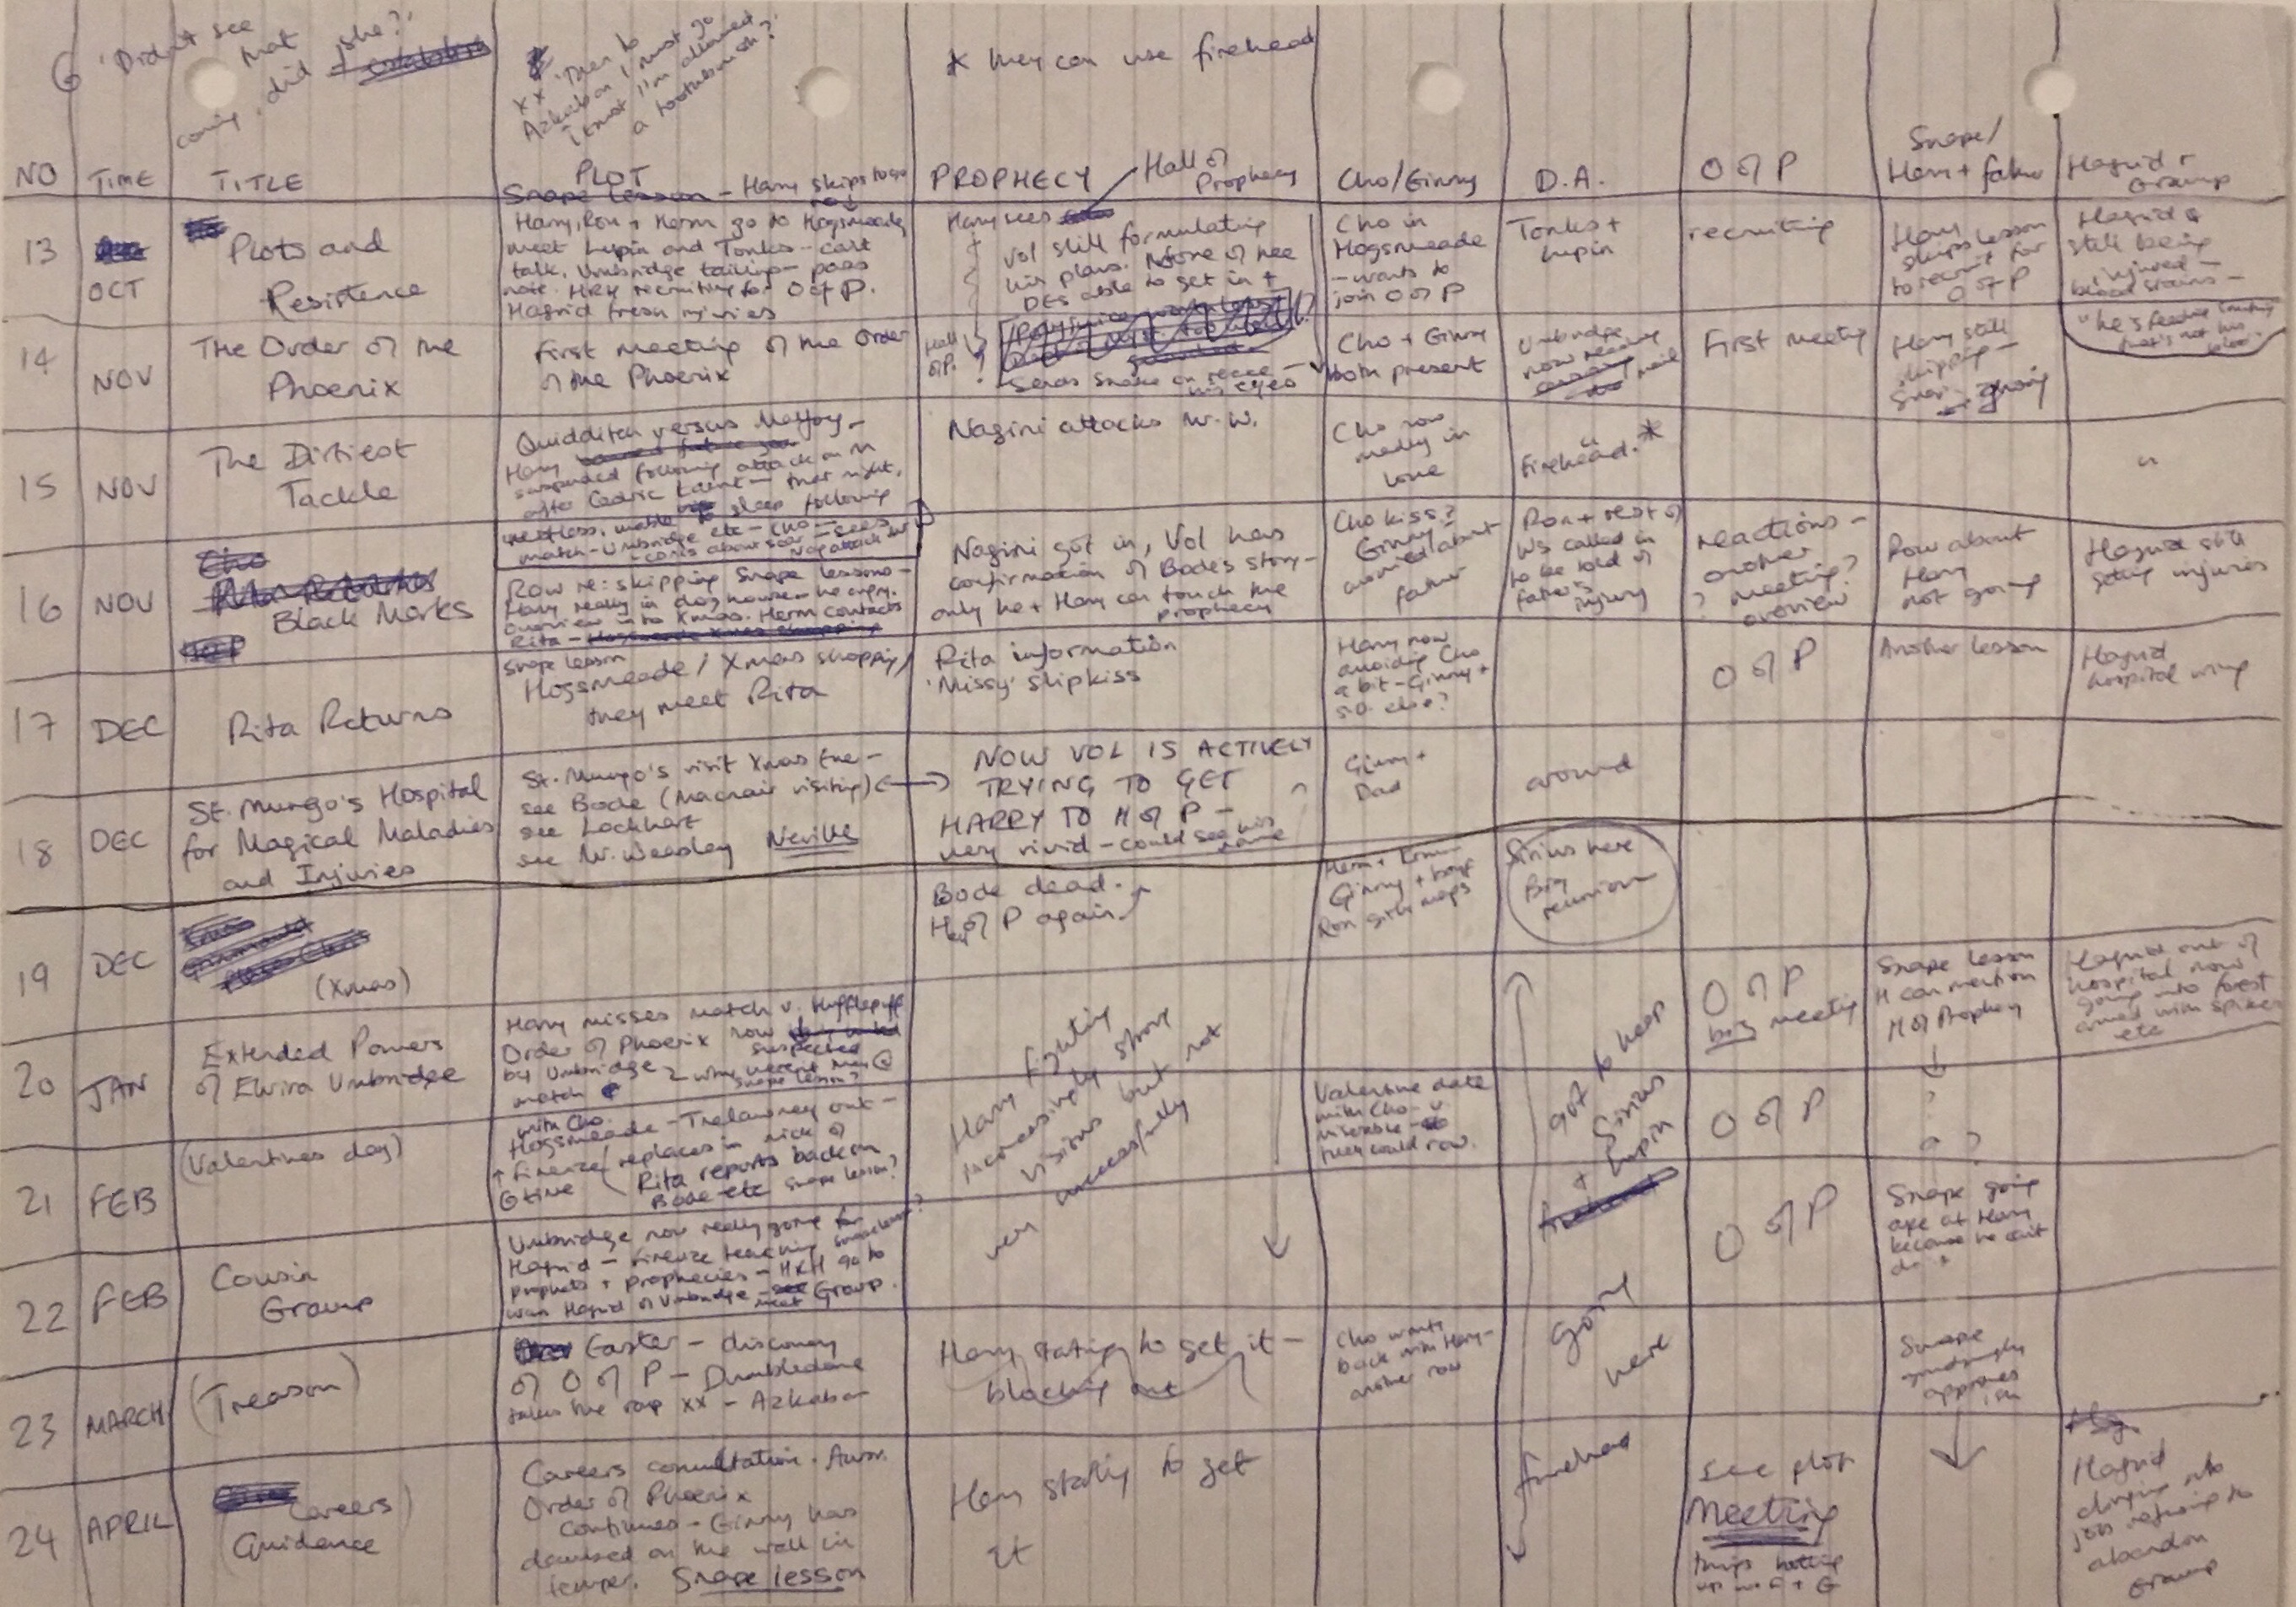 'Didn't see
that
coming, did she?'
xx 'Then to
Azkaban, I must go
I trust I'm allowed
a toothbrush?'
* they can use firehead
NO
TIME
TITLE
PLOT
PROPHECY
Hall of
Prophecy
Cho/Ginny
D.A.
O of P
Snape/
Harry + father
Hagrid +
Grawp
13
OCT
Plots and
Resistence
Snape lesson - Harry skips to go
Harry, Ron + Herm go to Hogsmeade,
meet Lupin and Tonks - can't
talk, Umbridge tailing - pass
note. HRH recruiting for O of P.
Hagrid fresh injuries
Harry sees
Vol still formulating
his plans. None of
DEs able to get in +
Cho in
Hogsmeade
- wants to
join O of P
Tonks +
Lupin
recruiting
Harry
skips lesson
to recruit for
O of P
Hagrid
still being
injured -
blood stains -
14
NOV
The Order of the
Phoenix
First Meeting of the Order
of the Phoenix
Hall
of P.
?
sends snake on recce -
his eyes
Cho + Ginny
both present
Umbridge
now reading
mail
First meeting
Harry still
skipping -
"he's feeding
that's not his
blood"
15
NOV
The Dirtiest
Tackle
Quidditch versus Malfoy -
Harry
suspended following attack on M
after Cedric taunt - that night,
restless, unable to sleep following
match - Umbridge etc - Cho - sees
Nag attack
Nagini attacks Mr. W.
Cho now
madly in
love
firehead. *
"
16
NOV
Cho
Rita Returns
Black Marks
Row re: skipping Snape lessons -
Harry really in doghouse - he angry.
Overview into Xmas. Herm contacts
Rita - Hogsmeade Xmas shopping
Nagini got in, Vol has
confirmation of Bode's story -
only he + Harry can touch the
prophecy
Cho kiss?
Ginny
worried about
father
Ron + rest of
Ws called in
to be told of
father's
injury
reactions -
another
meeting?
? overview
Row about
Harry
not going
Hagrid still
getting injuries
17
DEC
Rita Returns
Snape lesson
Hogsmeade / Xmas shopping /
they meet Rita
Rita information
'Missy' slipkiss
Harry now
avoiding Cho
a bit - Ginny +
s.o. else?
O of P
Another lesson
Hagrid
hospital wing
18
DEC
St. Mungo's Hospital
for Magical Maladies
and Injuries
St. Mungo's visit Xmas Eve -
see Bode (Macnair visiting)
see Lockhart
see Mr. Weasley Neville
NOW VOL IS ACTIVELY
TRYING TO GET
HARRY TO H of P -
very vivid - could see his
name
Ginny +
Dad
around
19
DEC
(Xmas)
Bode dead.
H of P again
Herm + Krum
Ginny + boyf
Ron girls maps
Sirius here
Big
reunion
20
JAN
Extended Powers
of Elvira Umbridge
Harry misses match v. Hufflepuff
Order of Phoenix now
suspected
by Umbridge
match
Snape lesson?
Harry fighting
increasingly strong
visions but not
very successfully
got to keep
Sirius
+ Lupin
going
here
O of P
big meeting
Snape lesson
H can mention
H of Prophecy
Hagrid out of
hospital now
going into forest
armed with spikes
etc
21
FEB
(Valentines day)
with Cho
Hogsmeade - Trelawney out -
Firenze replaces in nick of
time
Rita reports back on
Bode etc Snape lesson?
Valentine date
with Cho - v.
miserable -
they could row.
O of P
?
?
22
FEB
Cousin
Grawp
Umbridge now really going for
Hagrid - Firenze teaching
prophets + prophecies - H + H go to
warn Hagrid of Umbridge - meet Grawp.
Snape lesson?
O of P
Snape going
ape at Harry
because he can't
do it
23
MARCH
(Treason)
Easter - discovery
of O of P - Dumbledore
takes the rap xx - Azkaban
Harry starting to get it -
blocking out
Cho wants
back with Harry -
another row
Snape
grudgingly
approves
24
APRIL
(Careers)
Guidance
Careers consultation. Auror.
Order of Phoenix
continues - Ginny has
on the wall in
temper. Snape lesson
Harry starting to get
it
firehead
see plot
Meeting
things hotting
up w. F + G
Hagrid
clinging into
job refusing to
abandon
Grawp